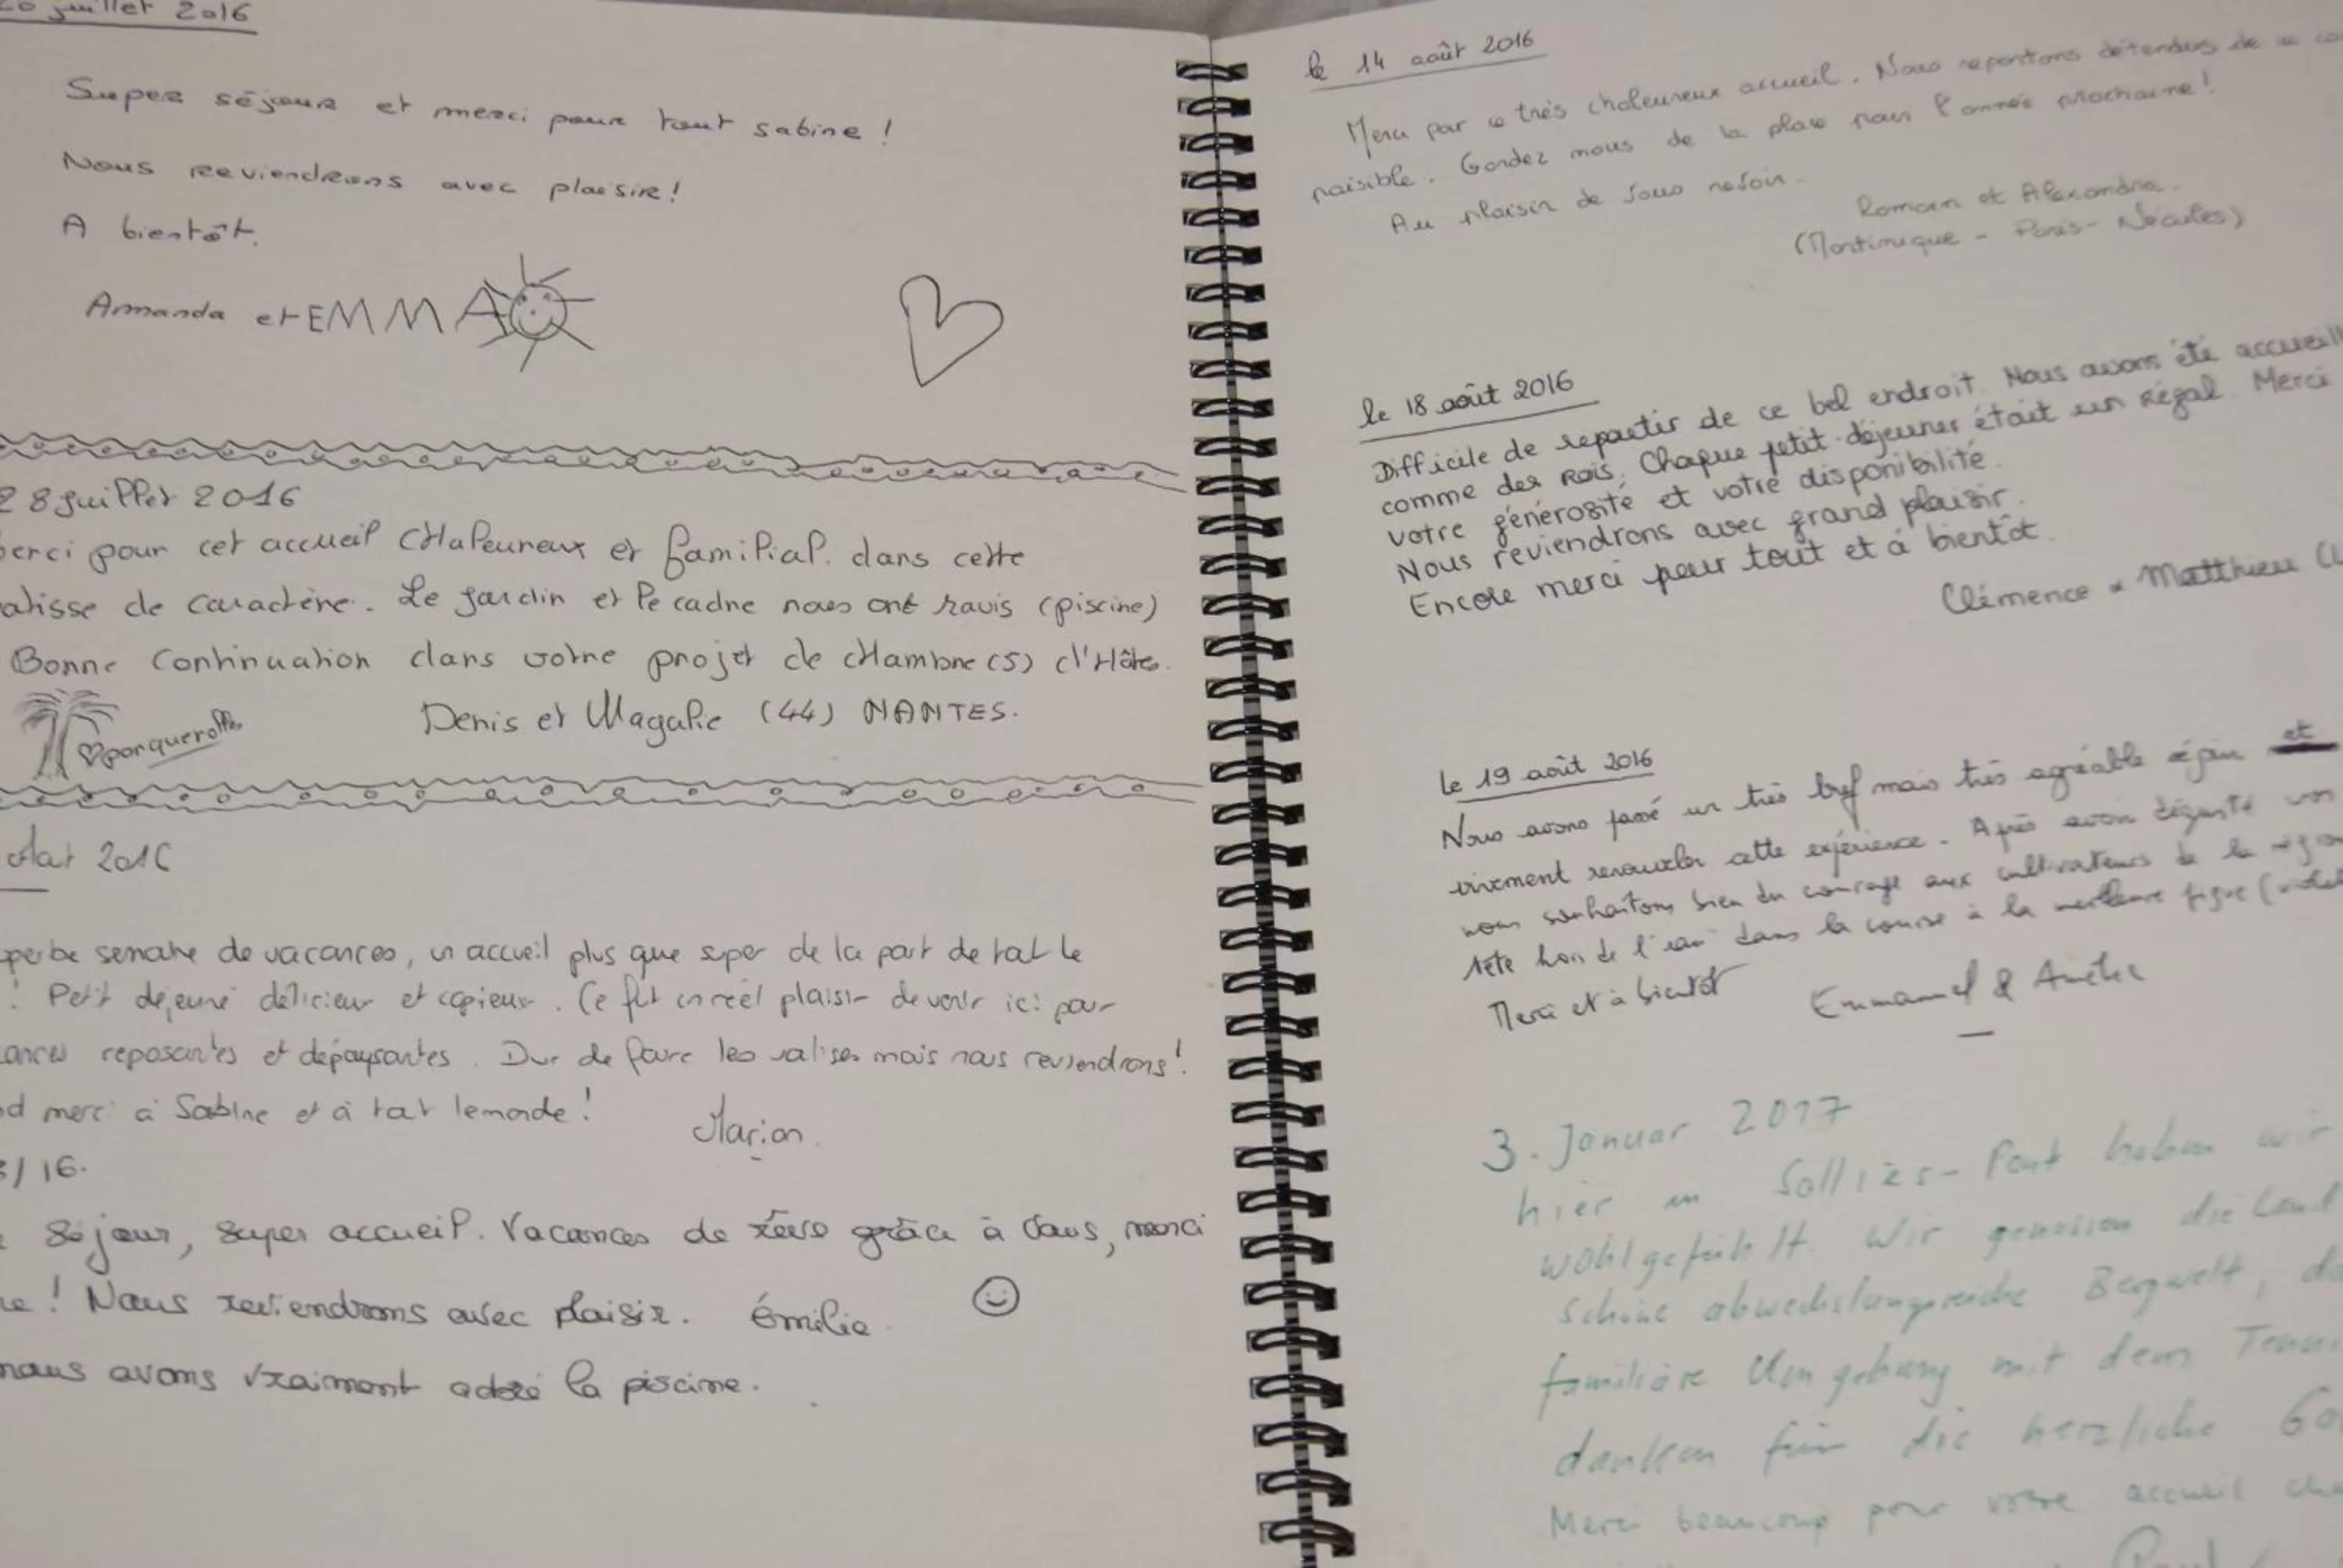 juillet 2016
Super séjour et merci pour tout sabine !
Nous reviendrons avec plaisir !
A bientôt.
Armanda et EMMA
28 juillet 2016
merci pour cet accueil CHaleureux et familial. dans cette
atisse de caractère. Le jardin et le cadre nous ont ravis (piscine)
Bonne Continuation dans votre projet de cHambre(s) d'Hôtes.
Denis et Magalie (44) NANTES.
porquerolles
2016
perbe semaine de vacances, un accueil plus que super de la part de tout le
! Petit déjeuné délicieux et copieux. Ce fut un réel plaisir de venir ici pour
ances reposantes et dépaysantes. Dur de faire les valises mais nous reviendrons !
d merci à Sabine et à tout le monde !
Marion
/ 16.
séjour, super accueil. Vacances de rêve grâce à vous, merci
ne ! Nous reviendrons avec plaisir. Émilie
nous avons vraiment adoré la piscine.
le 14 août 2016
Merci par ce très chaleureux accueil. Nous repartons détendus de ce
paisible. Gardez nous de la place pour l'année prochaine !
Au plaisir de vous revoir.
Romain et Alexandra.
(Martinique - Paris - Néoules)
le 18 août 2016
Difficile de repartir de ce bel endroit. Nous avons été accueill
comme des Rois. Chaque petit-déjeuner était un régal. Merci
votre générosité et votre disponibilité.
Nous reviendrons avec grand plaisir.
Encore merci pour tout et à bientôt.
Clémence & Matthieu
le 19 août 2016
Nous avons passé un très bref mais très agréable séjour et
vivement renouveler cette expérience. Après avoir dégusté vos
nous souhaitons bien du courage aux cultivateurs de la région
tête hors de l'eau dans la course à la meilleure figue (violet
Merci et à bientôt
Emmanuel & Amélie
3. Januar 2017
hier in Solliès-Pont haben wir
wohlgefühlt. Wir genossen die Land
schöne abwechslungsreiche Bergwelt,
familiäre Umgebung mit dem
danken für die herzliche
Merci beaucoup pour votre accueil